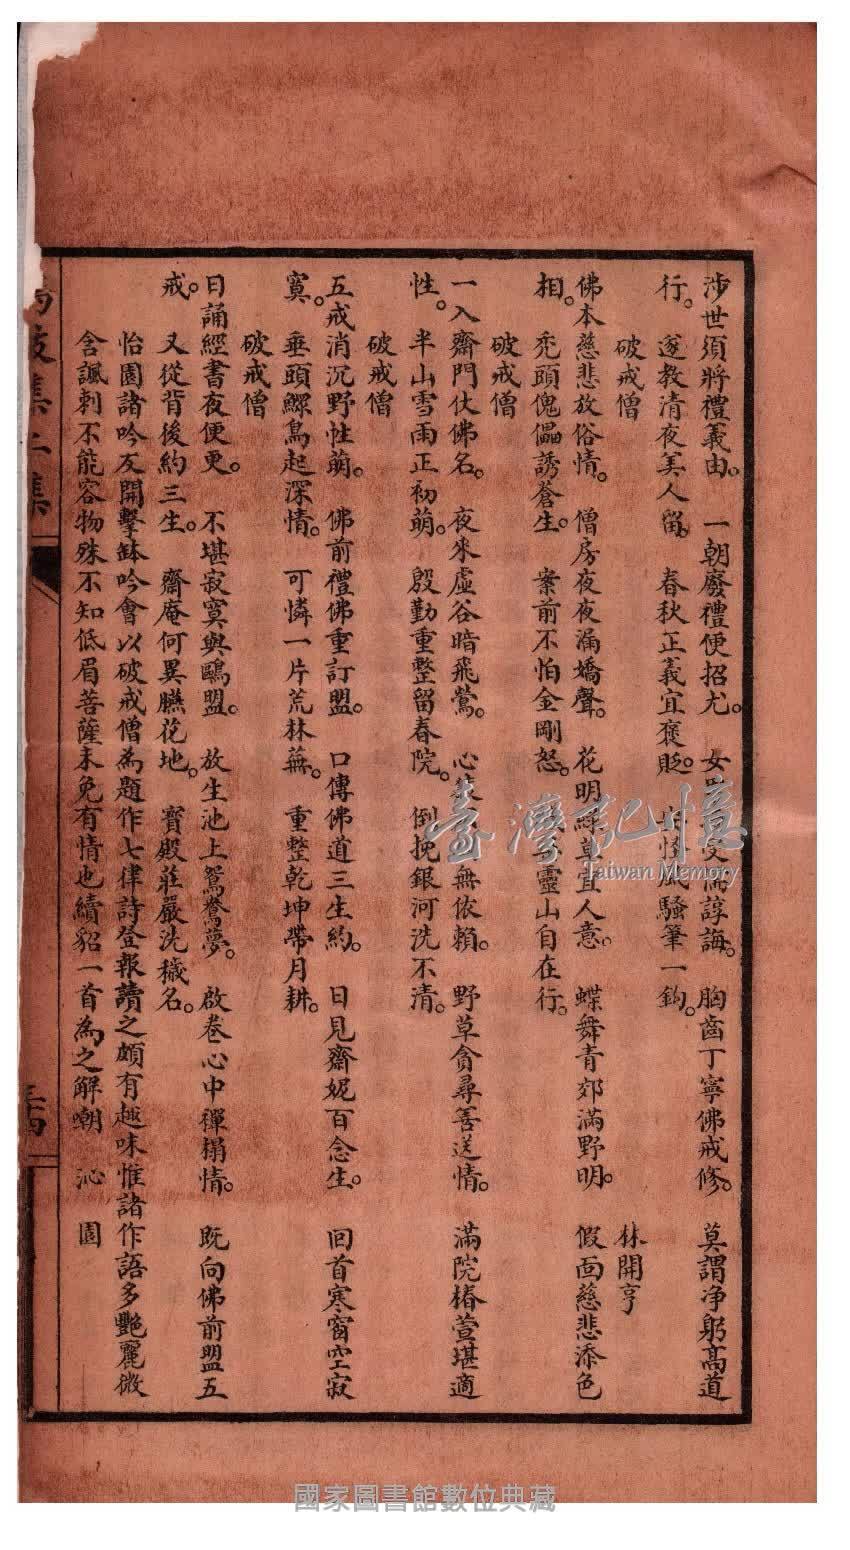 涉世須將禮義由。一朝廢禮便招尤。女 受 諄誨。胸齒丁寧佛戒修。莫謂净躬髙道
行。遂教清夜美人留。春秋正義宜褒貶。 風騷筆一鈎。
破戒僧 林開亨
佛本慈悲放俗情。僧房夜夜漏嬌聲。花明綠草宜人意。蝶舞青郊滿野明。假面慈悲添色
相。禿頭傀儡誘蒼生。案前不怕金剛怒。 靈山自在行。
破戒僧
一入齋門仗佛名。夜來虛谷暗飛鶯。心 無依賴。野草貪尋善送情。滿院椿萱堪適
性。半山雪雨正初萌。殷勤重整留春院。倒挽銀河洗不清。
破戒僧
五戒消沉野性萌。佛前禮佛重訂盟。口傳佛道三生約。日見齋妮百念生。回首寒窗空寂
寞。垂頭鰥鳥起深情。可憐一片荒林蕪。重整乾坤帶月耕。
破戒僧
日誦經書夜便更。不堪寂寞與鷗盟。放生池上鴛鴦夢。啟卷心中禪榻情。既向佛前盟五
戒。又從背後約三生。齋庵何異臙花地。寶殿莊嚴洗穢名。
怡園諸吟友開擊缽吟會以破戒僧為題作七律詩登報讀之頗有趣味惟諸作語多艷麗微
含諷刺不能容物殊不知低眉菩薩未免有情也續貂一首為之解嘲 沁園
集
臺灣記憶
Taiwan Memory
國家圖書館數位典藏